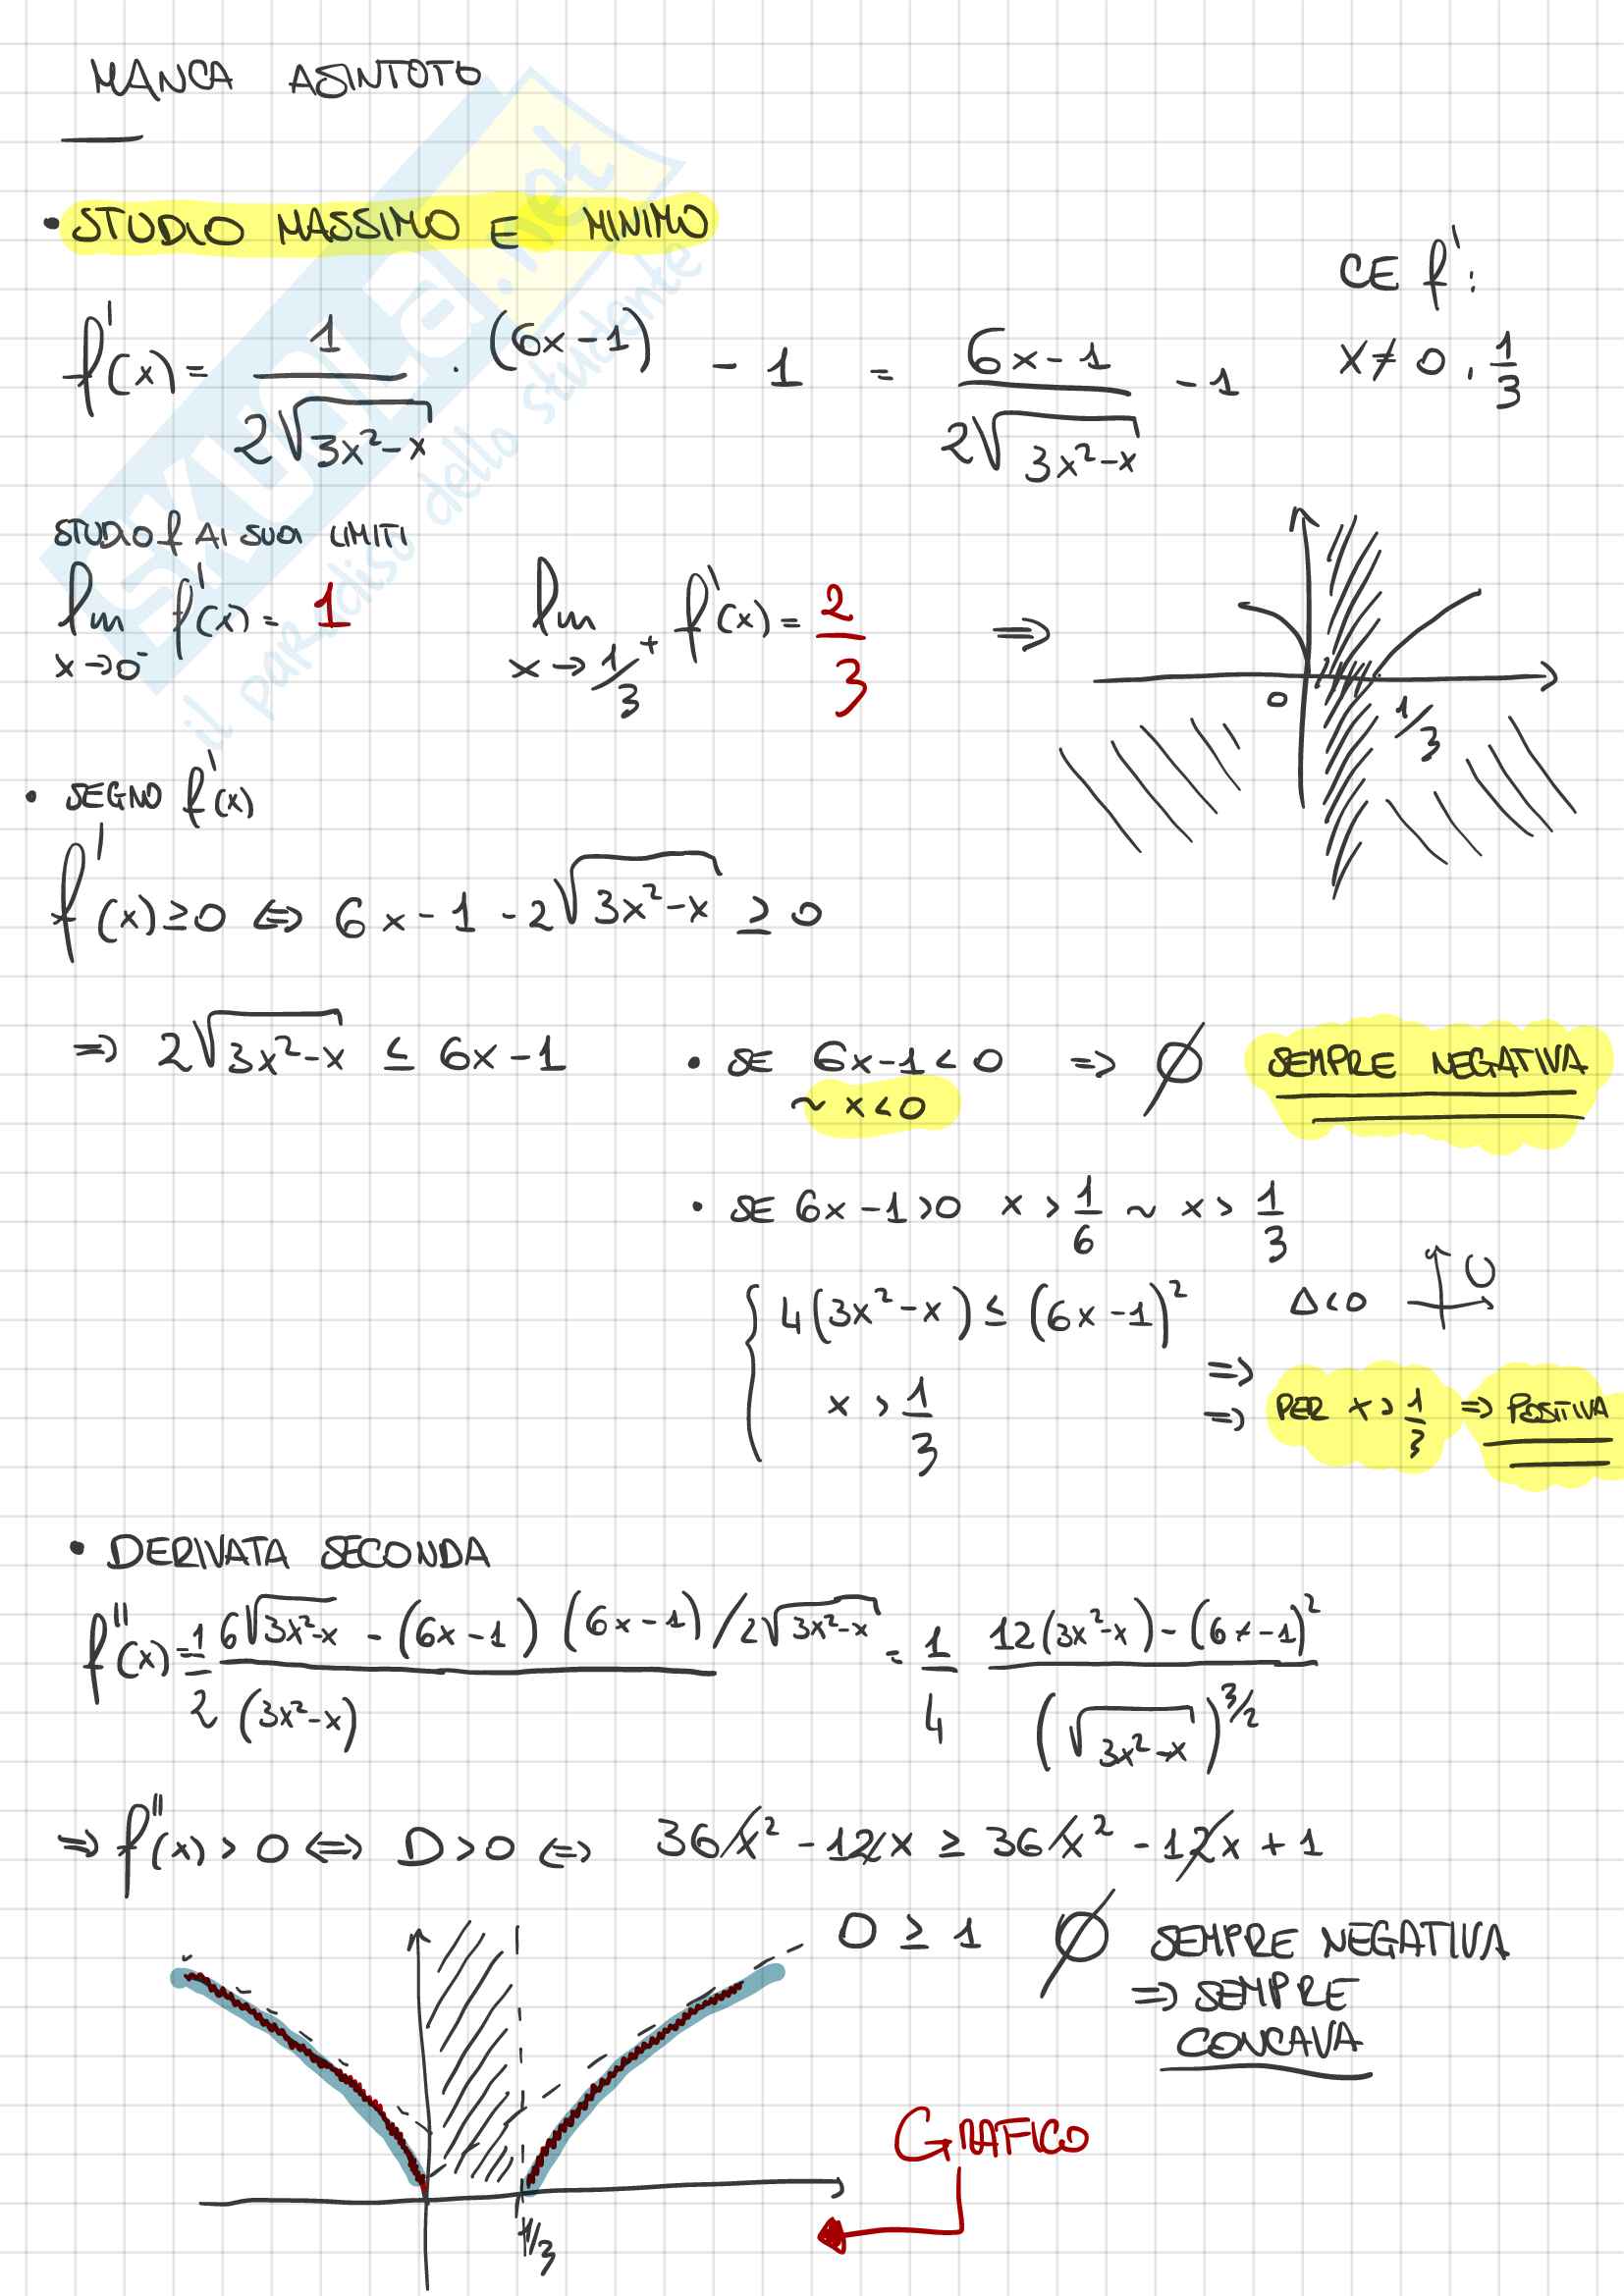 MANCA ASINTOTO
• STUDIO MASSIMO E MINIMO
CE f':
f'(x) = 1/(2√(3x²-x)) · (6x-1) - 1 = (6x-1)/(2√(3x²-x)) - 1
x ≠ 0, 1/3
STUDIO f AI SUOI LIMITI
lim x→0⁻ f'(x) = 1
lim x→1/3⁺ f'(x) = 2/3 ⇒
0 1/3
• SEGNO f'(x)
f'(x) ≥ 0 ⇔ 6x-1-2√(3x²-x) ≥ 0
⇒ 2√(3x²-x) ≤ 6x-1
• SE 6x-1<0 ⇒ ∅ SEMPRE NEGATIVA
~ x<0
• SE 6x-1>0 x > 1/6 ~ x > 1/3
{ 4(3x²-x) ≤ (6x-1)² Δ<0
x > 1/3
⇒
⇒ PER x > 1/3 ⇒ POSITIVA
• DERIVATA SECONDA
f''(x) = 1/2 (6√(3x²-x) - (6x-1)(6x-1)/2√(3x²-x))/(3x²-x) = 1/4 (12(3x²-x)-(6x-1)²)/(√(3x²-x))^(3/2)
⇒ f''(x) > 0 ⇔ D > 0 ⇔ 36x² - 12x ≥ 36x² - 12x + 1
0 ≥ 1 ∅ SEMPRE NEGATIVA
⇒ SEMPRE
CONCAVA
GRAFICO
1/3
SKUOLA.net
il paradiso dello studente